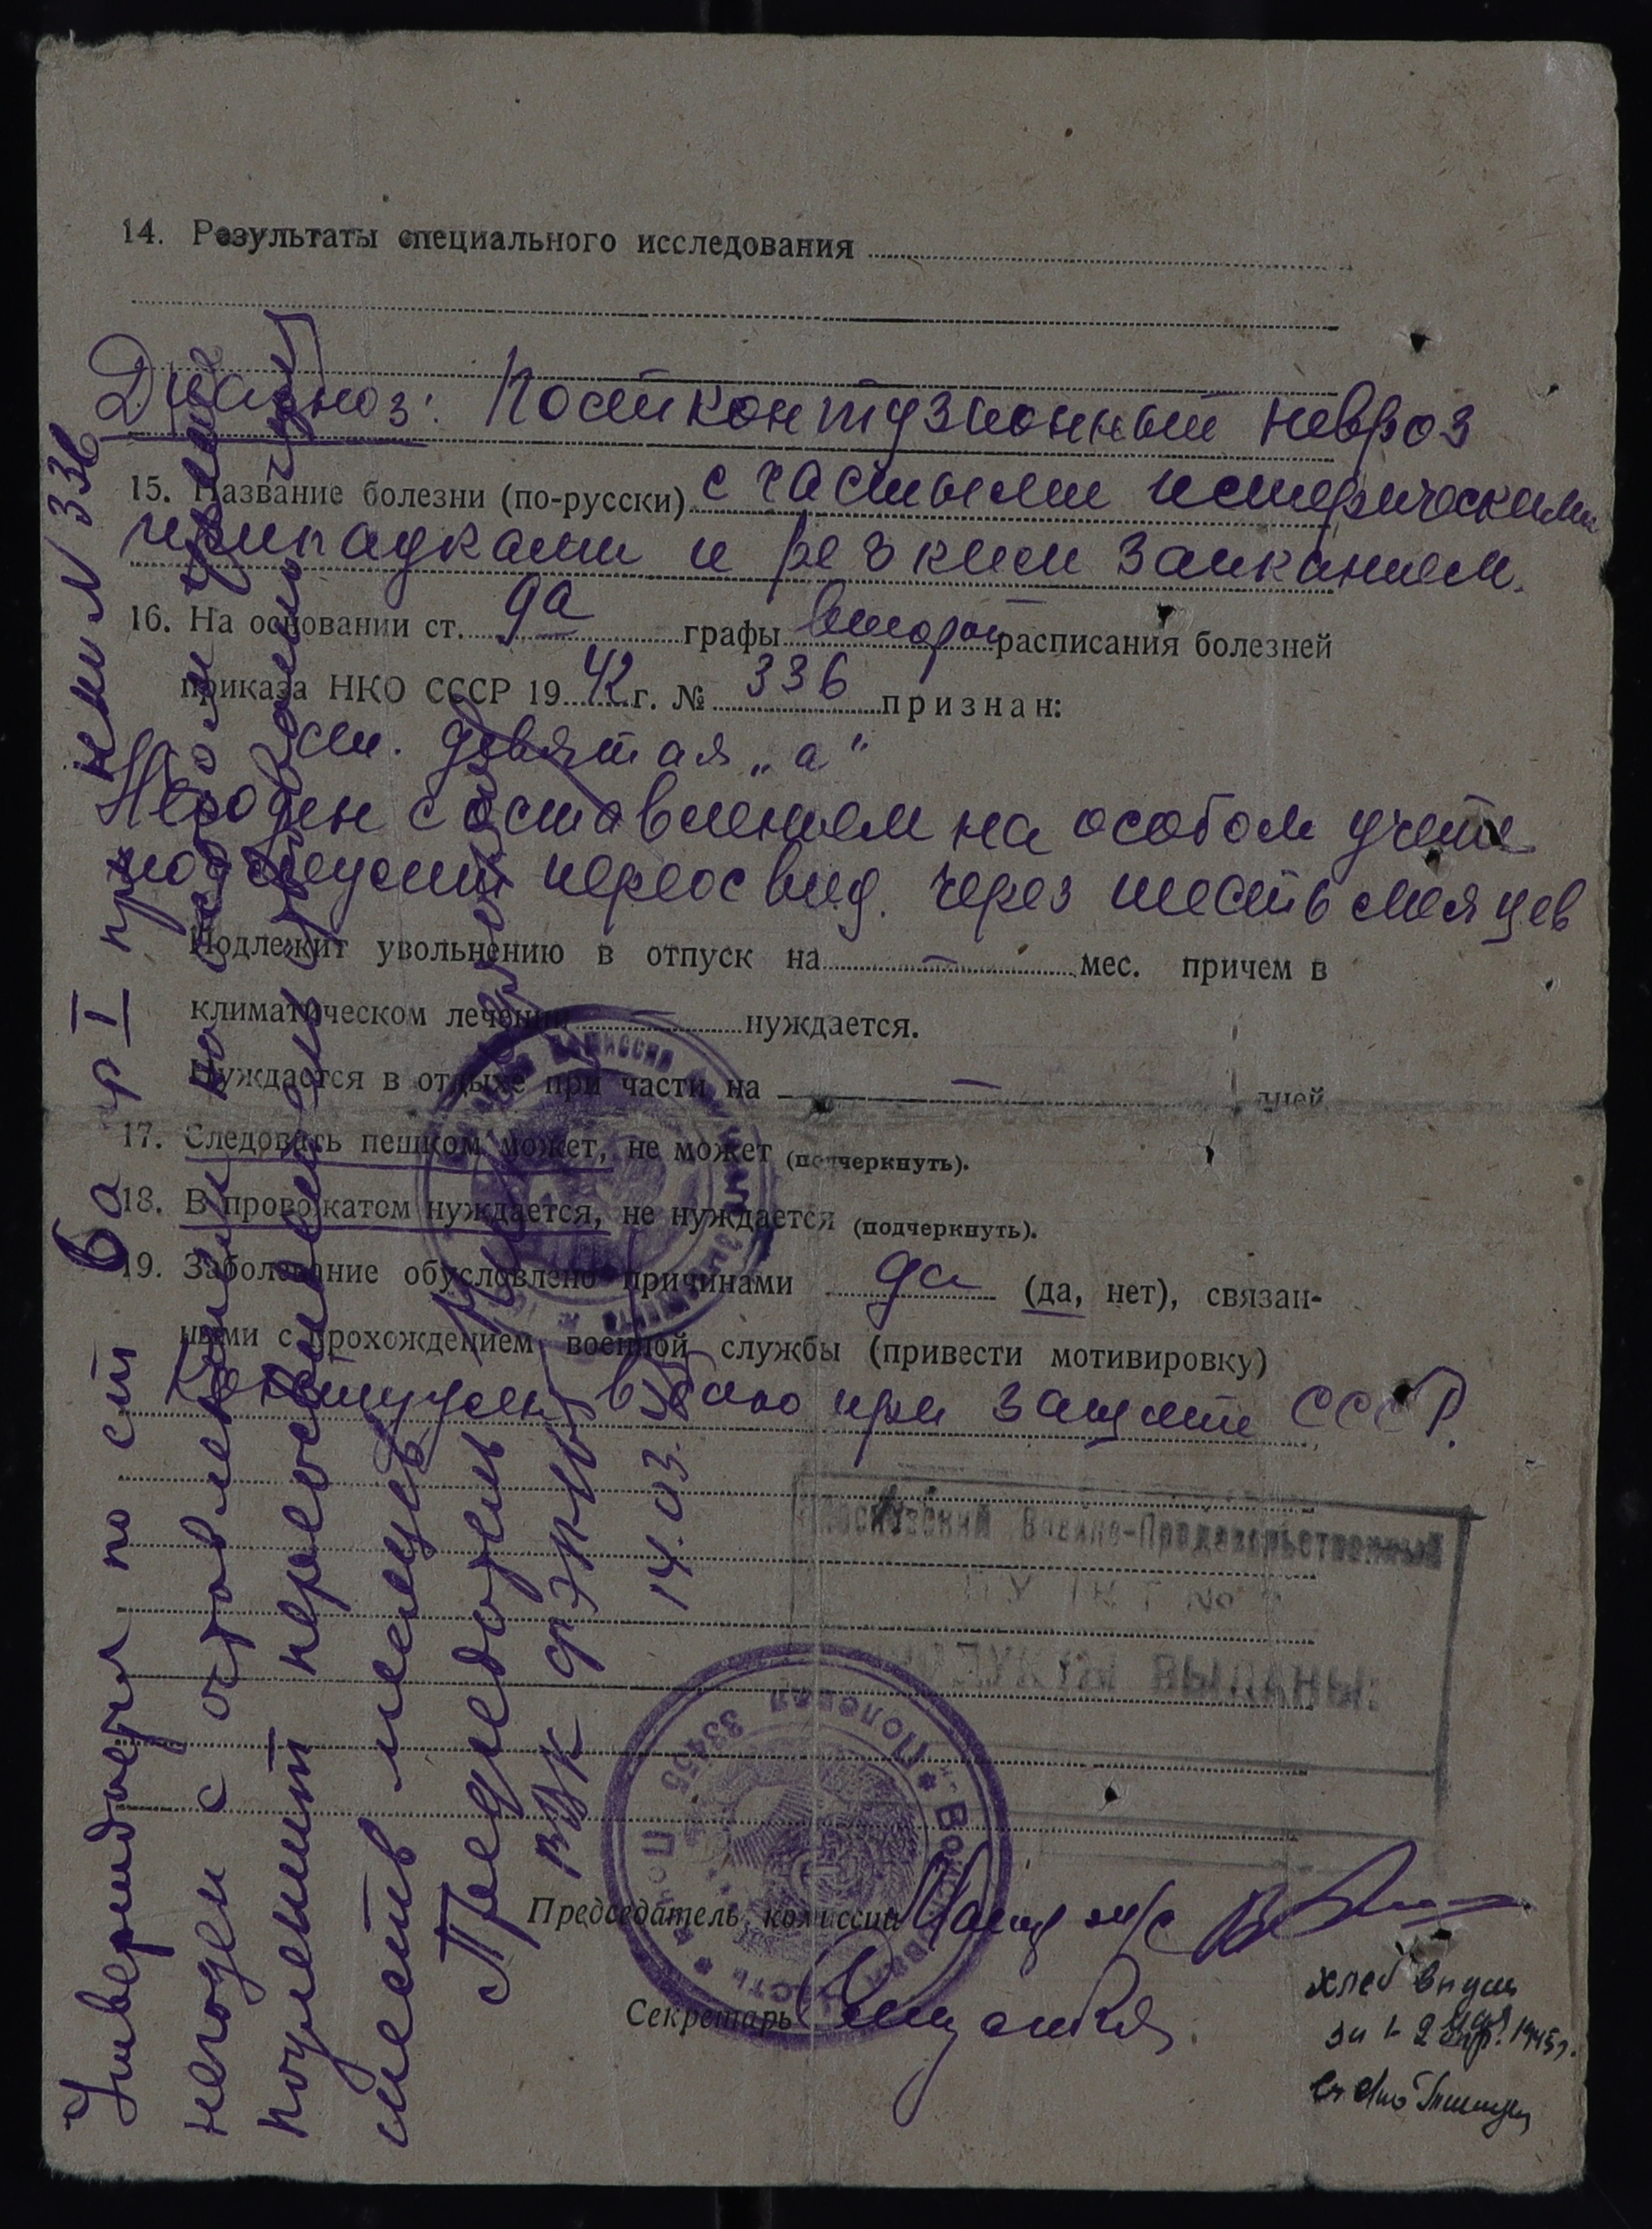 14. Результаты специального исследования
Диагноз: Постконтузионный невроз
15. Название болезни (по-русски) с частыми истерическими
припадками и резким заиканием.
16. На основании ст. 9а графы второй расписания болезней
приказа НКО СССР 1942 г. № 336 признан:
ст. девятая „а"
Негоден с оставлением на особом учете
подлежит переосвид. через шесть месяцев
Подлежит увольнению в отпуск на — мес. причем в
климатическом лечении — нуждается.
Нуждается в отдыхе при части на — дней
17. Следовать пешком может, не может (подчеркнуть).
18. В провожатом нуждается, не нуждается (подчеркнуть).
19. Заболевание обусловлено причинами да (да, нет), связан-
ными с прохождением военной службы (привести мотивировку)
Контужен в бою при защите СССР.
Московский Военно-Продовольственный
ПУНКТ №
ВЫДАНЫ:
Полевая 33455
Председатель комиссии
Секретарь
хлеб
1945г.
Утверждается по ст 6а гр I пр нки N 336
негоден с оставлением на особом учете
подлежит переосвидетельствованию
шесть месяцев
Председатель
ВВК ФЭП
14.03.